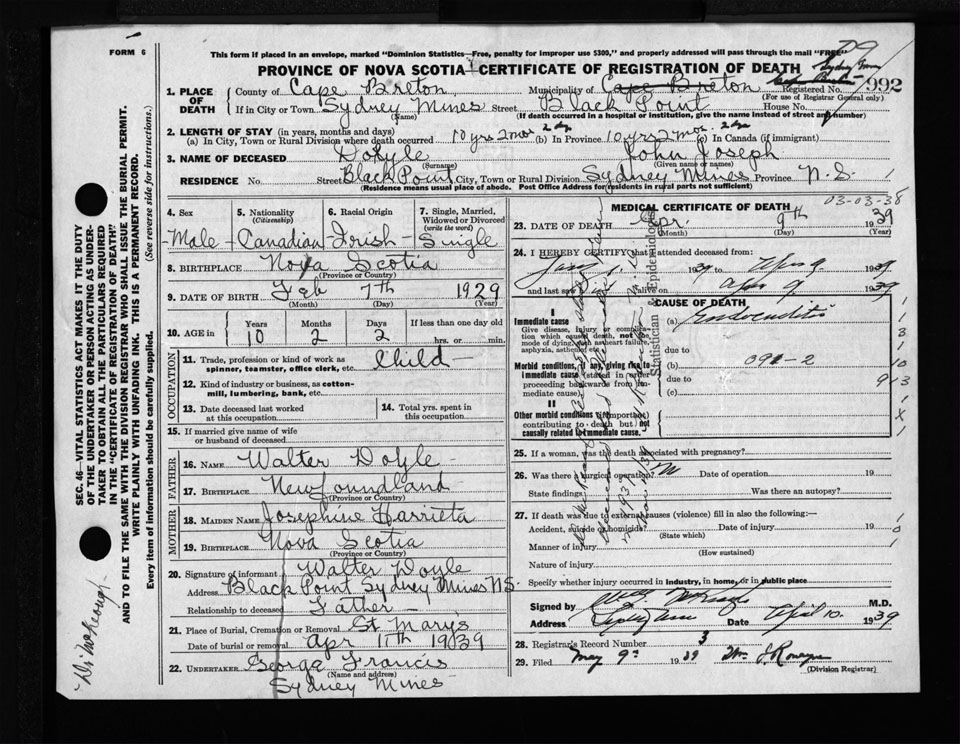 FORM 6
This form if placed in an envelope, marked "Dominion Statistics—Free, penalty for improper use $300," and properly addressed will pass through the mail "FREE"
PROVINCE OF NOVA SCOTIA CERTIFICATE OF REGISTRATION OF DEATH
992
1. PLACE OF DEATH
County of Cape Breton Municipality of Cape Breton Registered No.
(For use of Registrar General only)
If in City or Town Sydney Mines Street Black Point House No.
(Name) (If death occurred in a hospital or institution, give the name instead of street and number)
2. LENGTH OF STAY (in years, months and days)
(a) In City, Town or Rural Division where death occurred 10 yrs 2 mos 2 dys (b) In Province 10 yrs 2 mos. 2 dys (c) In Canada (if immigrant)
3. NAME OF DECEASED Doyle John Joseph
(Surname) (Given name or names)
RESIDENCE No. Street Black Point City, Town or Rural Division Sydney Mines Province N.S.
(Residence means usual place of abode. Post Office Address for residents in rural parts not sufficient)
SEC. 46—VITAL STATISTICS ACT MAKES IT THE DUTY
OF THE UNDERTAKER OR PERSON ACTING AS UNDER-
TAKER TO OBTAIN ALL THE PARTICULARS REQUIRED
IN THE "CERTIFICATE OF REGISTRATION OF DEATH"
AND TO FILE THE SAME WITH THE DIVISION REGISTRAR WHO SHALL ISSUE THE BURIAL PERMIT.
WRITE PLAINLY WITH UNFADING INK. THIS IS A PERMANENT RECORD.
Every item of information should be carefully supplied. (See reverse side for instructions.)
4. Sex
Male
5. Nationality
(Citizenship)
Canadian
6. Racial Origin
Irish
7. Single, Married, Widowed or Divorced
(write the word)
Single
8. BIRTHPLACE Nova Scotia
(Province or Country)
9. DATE OF BIRTH Feb 7th 1929
(Month) (Day) (Year)
10. AGE in Years Months Days If less than one day old
10 2 2 hrs. or min.
OCCUPATION
11. Trade, profession or kind of work as spinner, teamster, office clerk, etc. Child
12. Kind of industry or business, as cotton-mill, lumbering, bank, etc.
13. Date deceased last worked at this occupation
14. Total yrs. spent in this occupation
15. If married give name of wife or husband of deceased
FATHER
16. NAME Walter Doyle
17. BIRTHPLACE Newfoundland
(Province or Country)
MOTHER
18. MAIDEN NAME Josephine Harrieta
19. BIRTHPLACE Nova Scotia
(Province or Country)
20. Signature of informant Walter Doyle
Address Black Point Sydney Mines N.S.
Relationship to deceased Father
21. Place of Burial, Cremation or Removal St Marys
Date of burial or removal Apr 11th 1939
22. UNDERTAKER George Francis
(Name and address)
Sydney Mines
MEDICAL CERTIFICATE OF DEATH
03-03-38
23. DATE OF DEATH Apr. 9th 1939
(Month) (Day) (Year)
24. I HEREBY CERTIFY that I attended deceased from:
1939 to Apr 9 1939
and last saw alive on Apr 9 1939
CAUSE OF DEATH
I
Immediate cause
Give disease, injury or complication which caused death, not the mode of dying, such as heart failure, asphyxia, asthenia, etc.
(a) Endocarditis
due to
Morbid conditions, if any, giving rise to immediate cause (stated in order proceeding backwards from immediate cause)
(b) 092-2
due to
(c)
II
Other morbid conditions (if important) contributing to death but not causally related to immediate cause.
Statistician & Epidemiologist
25. If a woman, was the death associated with pregnancy?
26. Was there a surgical operation? Date of operation 19
State findings Was there an autopsy?
27. If death was due to external causes (violence) fill in also the following:—
Accident, suicide or homicide? Date of injury 19
(State which)
Manner of injury
(How sustained)
Nature of injury
Specify whether injury occurred in industry, in home, or in public place
Signed by M.D.
Address Date April 10. 1939
28. Registrar's Record Number 3
29. Filed May 9th 1939
(Division Registrar)